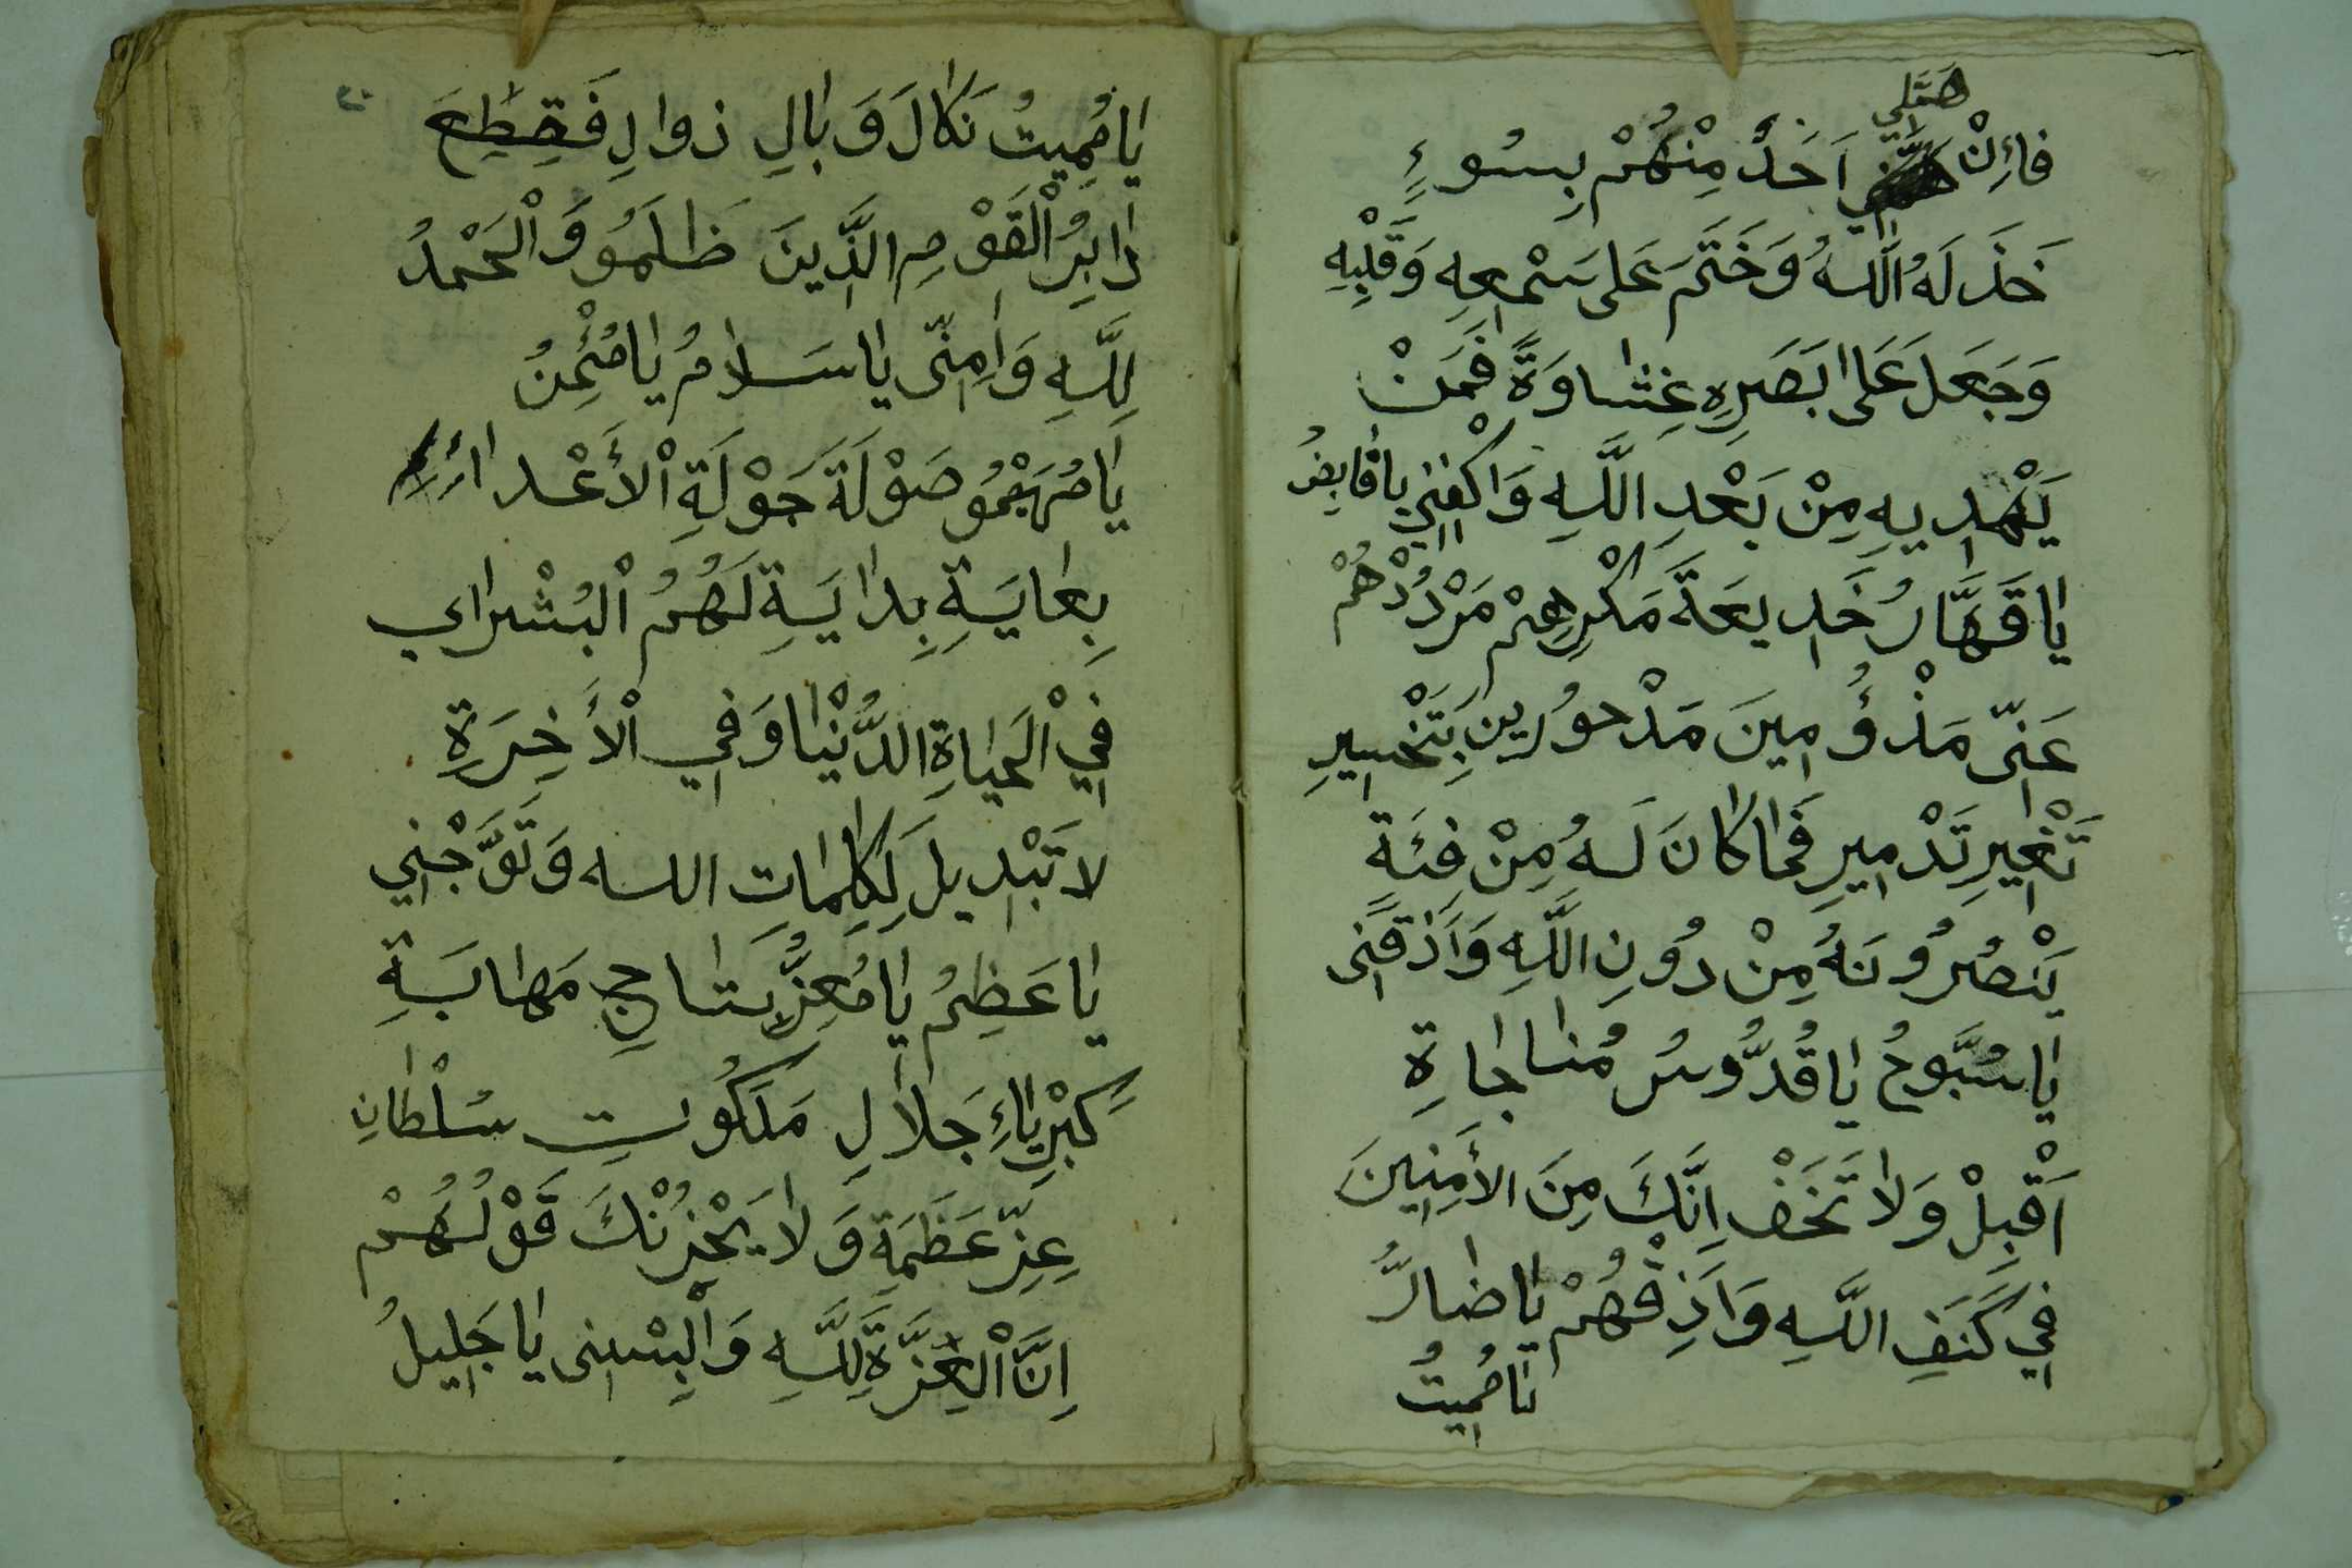 همَّلي
فاءِنْ اَحَدٌ مِنْهُمْ بِسُوءٍ
خَذَ لَهُ اللَّهُ وَخَتَمَ عَلى سَمْعِهِ وَقَلْبِهِ
وَجَعَلَ عَلى ابَصَرِهِ غِشاوَةً فَمَنْ
يَهْدِيهِ مِنْ بَعْدِ اللَّهِ وَاكْفِنِي ياقابِضُ
ياقَهَّارُ خَدِيعَةَ مَكْرِهِمْ مَرْدُدْهُمْ
عَنِّى مَذْؤُمِينَ مَدْحُورِينِ بَتَخْسِيرِ
تَغْيِيرِ تَدْمِيرِ فَما كانَ لَهُ مِنْ فِئَة
يَنْصُرُونَهُ مِنْ دُونِ اللَّهِ وَاَذِقْنِى
ياسُبَّوحُ ياقُدُّوسُ مُناجاةِ
اَقْبِلْ وَلا تَخَفْ اِنَّكَ مِنَ الأمِنِينَ
فِي كَنَفِ اللَّهِ وَاَذِقْهُمْ ياضارُّ
نامُمِيتُ
يامُمِيتُ نَكالَ وَبالِ زوالِ فَقِطِعَ
دابِرُ الْقَوْمِ الَّذِينَ ظَلَمُو وَالْحَمْدُ
لِلَّهِ وَامِنّى ياسَلامُ يامُئْمِنُ
يامُهَيْمِنُ صَوْلَةَ جَوْلَةِ الْأَعْداءِ
بِغايَةِ بِدايَةِ لَهُمُ الْبُشْراي
فِي الْحَياةِ الدُّنْيا وَفِي الْأَخِرَةِ
لا تَبْدِيلَ لِكَلِماتِ الله وَتَوَّجْنِي
ياعَظِمُ يامُعِزُّ بتاجِ مَهابَةِ
كِبْرِياءِ جَلالِ مَلَكُوتِ سُلْطانِ
عِزِّ عَظَمَةِ وَلا يَحْزُنْكَ قَوْلُهُمْ
اِنَّ الْعِزَّةَ لِلَّهِ وَالْبِسْنِى ياجَلِيلُ